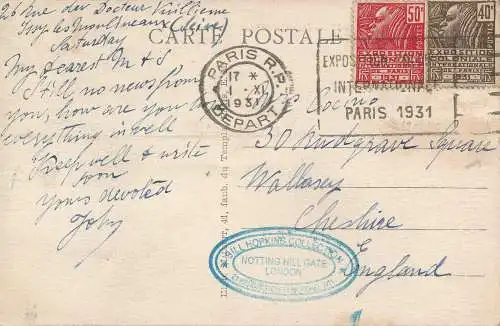 26 Rue du Docteur Vuillieme
Issy les Moulineaux
(Seine)
Saturday
CARTE POSTALE
My dearest M & S
Still no news from
you, how are you
everything is well
Keep well & write
soon
yours devoted
Toby
PARIS R.P.
17 *
1 - XI
1931
DEPART
50c
40c
EXPOSITION COLONIALE
INTERNATIONALE
PARIS 1931
30 Rudgrave Square
Wallasey
Cheshire
England
41, faub. du Temple
BILL HOPKINS COLLECTION
NOTTING HILL GATE
LONDON